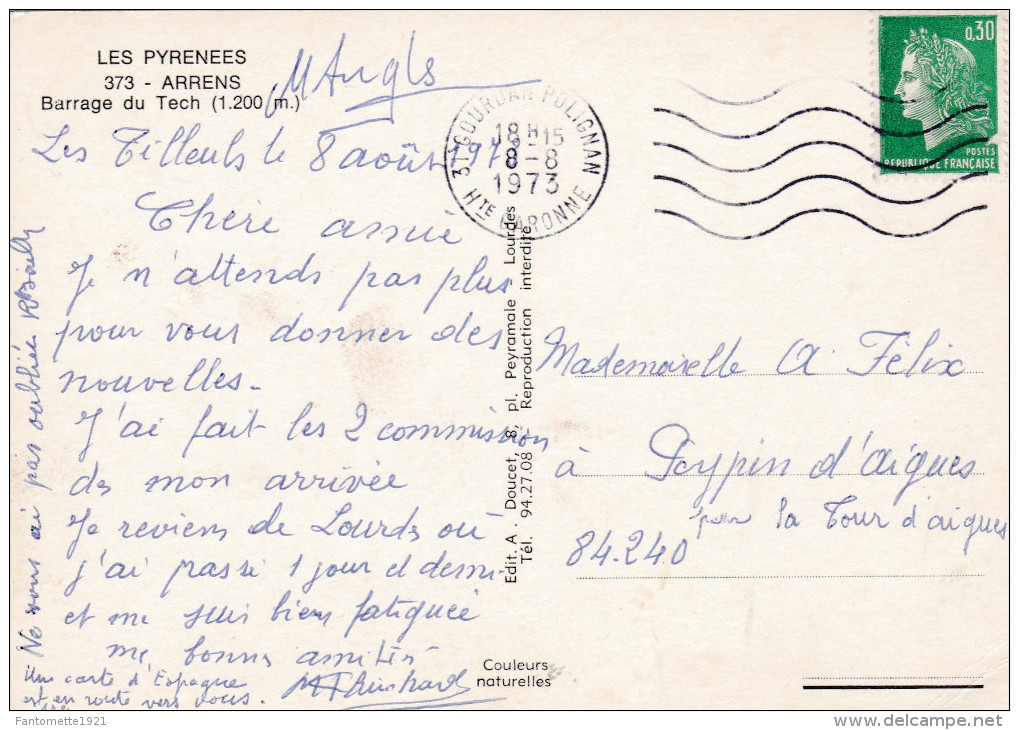 LES PYRENEES
373 - ARRENS
Barrage du Tech (1.200 m.)
M Angls
Les Tilleuls le 8 août 1973
31 GOURDAN-POLIGNAN
18 H 15
8 - 8
1973
HTE GARONNE
0,30
POSTES
REPUBLIQUE FRANÇAISE
Chère amie
Je n'attends pas plus
pour vous donner des
nouvelles.
J'ai fait les 2 commissions
dès mon arrivée
Je reviens de Lourdes où
j'ai passé 1 jour et demi
et me suis bien fatiguée
mes bonnes amitiés
Une carte d'Espagne
est en route vers vous.
Ne vous ai pas oubliée
Edit. A. Doucet, 8, pl. Peyramale - Lourdes
Tél. 94.27.08 - Reproduction interdite
Couleurs
naturelles
Mademoiselle A Félix
à Peypin d'aigues
par la Tour d'aigues
84.240
Fantomette1921
delcampe.net